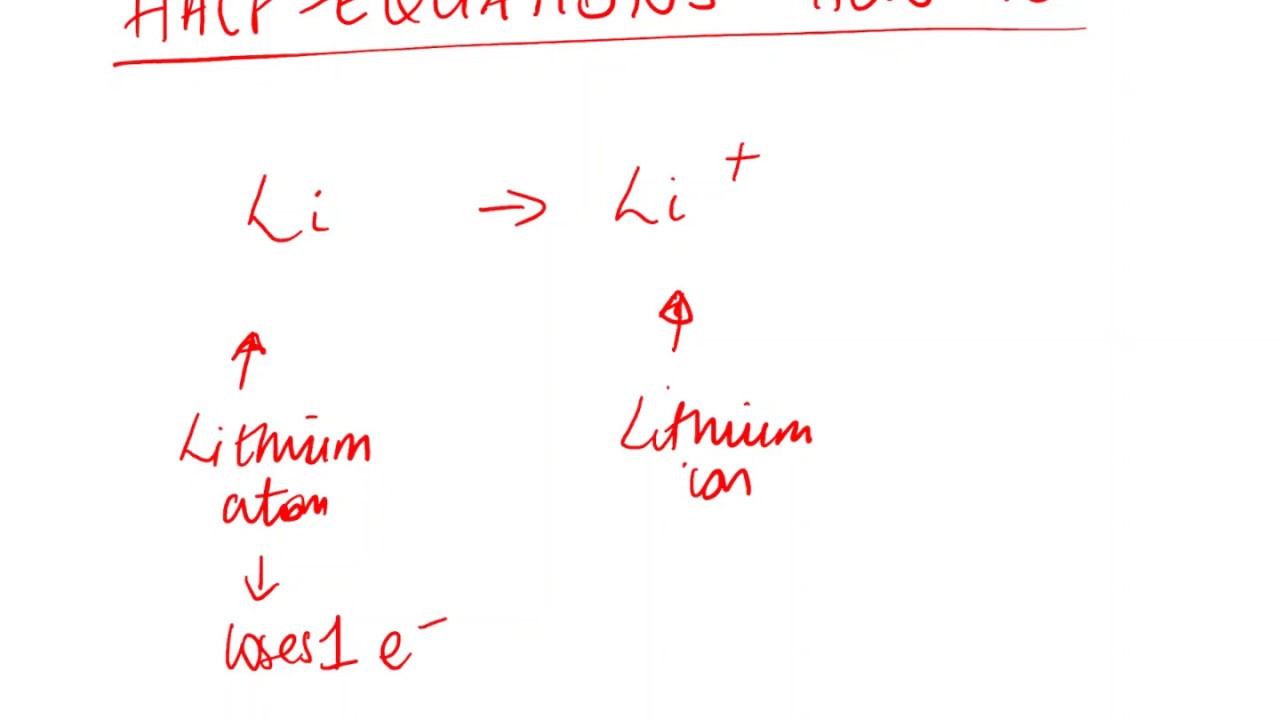 HALF-EQUATIONS HOW TO
Li → Li⁺
Lithium
atom
↓
loses 1 e⁻
Lithium
ion